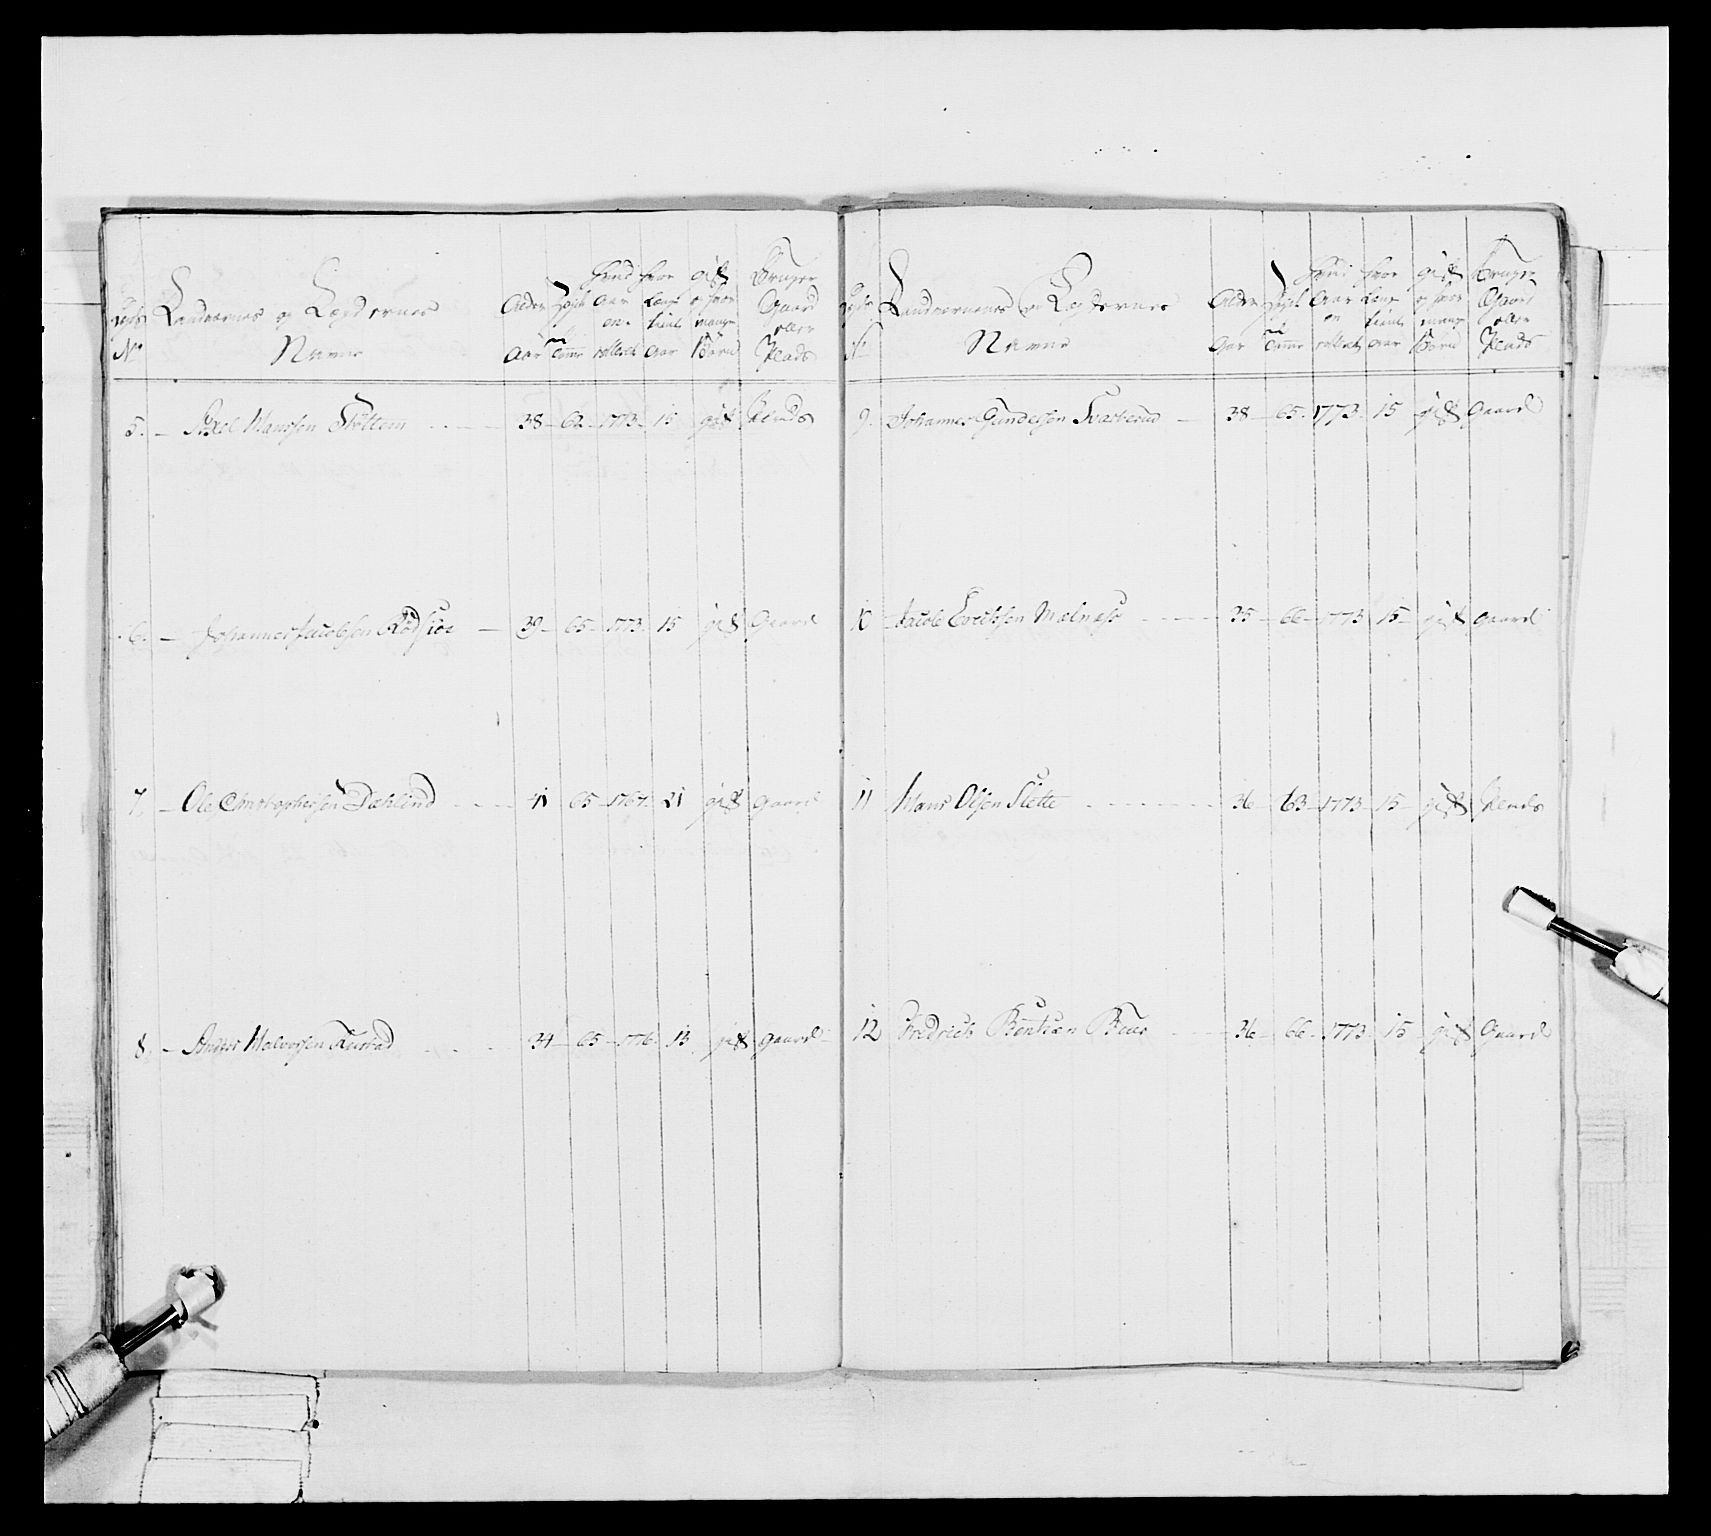 Landværnes og Lægdernes
Navne
Alder
Aar
Høyde
Tomer
hvad
Aar
en-
rolleret
hvor
længe
tient
Aar
gift
og hvor
mange
Børn
Bruger
Gaard
eller
Plads
5. Axel Hansen Støttem 38 62 1773 15 gift Plads
6. Johannes Jacobsen Rødsiøe 39 65 1773 15 gift Gaard
7. Ole Christophersen Dæhlind 41 65 1767 21 gift Gaard
8. Anders Halvorsen Rustad 34 65 1776 13 gift gaard
Landværnenes og Lægdernes
No
Navne
Alder
Aar
Tomer
hvad
Aar
en
rolleret
hvor
længe
tient
Aar
gift
og hvor
mange
Børn
Bruger
Gaard
eller
Plads
9. Johannes Gundersen Svarterud 38 65 1773 15 gift Gaard
10 Jacob Erichsen Melnæss 35 66 1773 15 gift gaard
11 Hans Olsen Slette 36 63 1773 15 gift Plads
12 Fredrich Bentsen 36 66 1773 15 gift Gaard